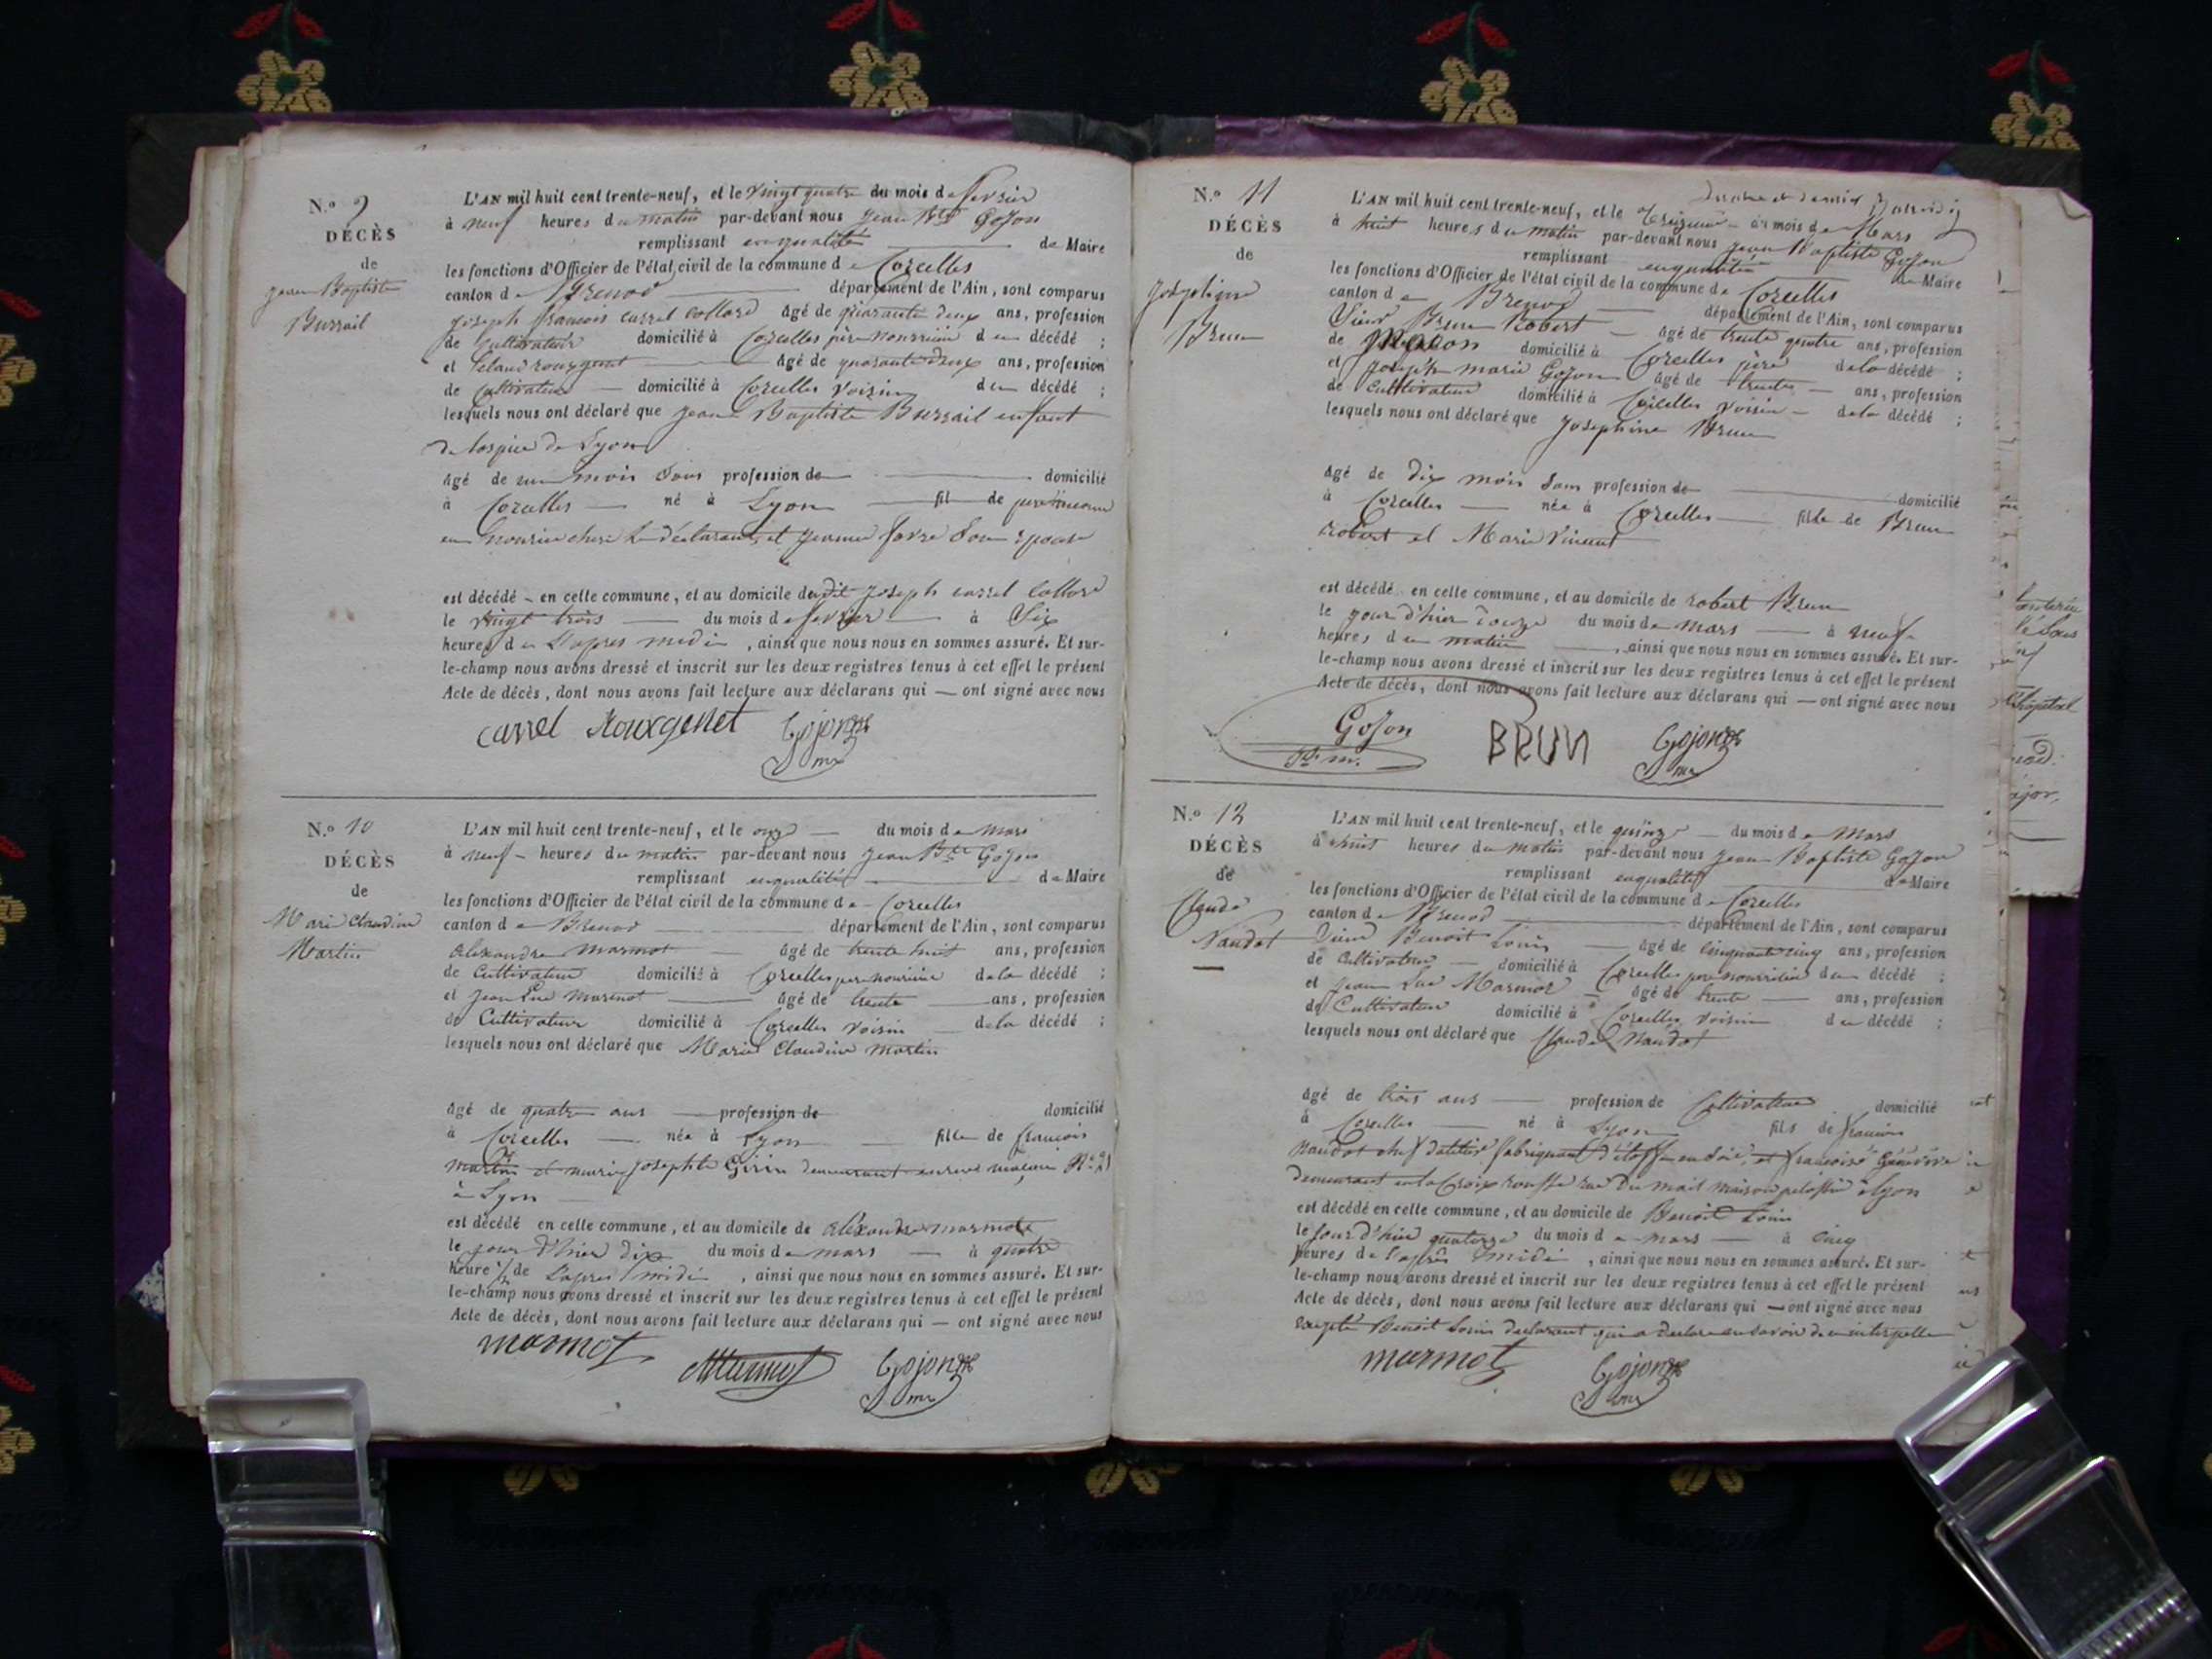 N.o 9
DÉCÈS
de
jean Baptiste
Burrail
L'AN mil huit cent trente-neuf, et le vingt quatre du mois de fevrier
à neuf heures du matin par-devant nous jean Bte Gojon
remplissant en qualité de Maire
les fonctions d'Officier de l'état civil de la commune de Corcelles
canton de Brenod département de l'Ain, sont comparus
joseph francois carrel collard âgé de quarante deux ans, profession
de cultivateur domicilié à Corcelles père nourricier du décédé ;
et rouxgenet âgé de quarante deux ans, profession
de Cultivateur domicilié à Corcelles voisin du décédé ;
lesquels nous ont déclaré que jean Baptiste Burrail enfant
de lospice de Lyon
âgé de un mois sans profession de domicilié
à Corcelles né à Lyon fil de père inconnu
en nourrice chez le déclarant et jeanne favre son epouse
est décédé en cette commune, et au domicile dudit joseph carrel collard
le vingt trois du mois de fevrier à Six
heures de l'apres midi, ainsi que nous nous en sommes assuré. Et sur-
le-champ nous avons dressé et inscrit sur les deux registres tenus à cet effet le présent
Acte de décès, dont nous avons fait lecture aux déclarans qui — ont signé avec nous
carrel Rouxgenet Gojon
mre
N.o 10
DÉCÈS
de
Marie Claudine
Martin
L'AN mil huit cent trente-neuf, et le onze du mois de mars
à neuf heures du matin par-devant nous jean Bte Gojon
remplissant en qualité de Maire
les fonctions d'Officier de l'état civil de la commune de Corcelles
canton de Brenod département de l'Ain, sont comparus
Alexandre Marmot âgé de trente huit ans, profession
de Cultivateur domicilié à Corcelles pere nourricier de la décédé ;
et jean Luc Marmot âgé de trente ans, profession
de Cultivateur domicilié à Corcelles voisin de la décédé ;
lesquels nous ont déclaré que Marie Claudine martin
âgé de quatre ans profession de domicilié
à Corcelles née à Lyon fille de francois
martin et marie josephte Girin demeurant en rue N° 21
à Lyon
est décédé en cette commune, et au domicile de alexandre marmot
le jour d'hier dix du mois de mars à quatre
heure ½ de l'apres midi, ainsi que nous nous en sommes assuré. Et sur-
le-champ nous avons dressé et inscrit sur les deux registres tenus à cet effet le présent
Acte de décès, dont nous avons fait lecture aux déclarans qui — ont signé avec nous
marmot Marmot Gojon
mre
N.o 11
DÉCÈS
de
Josephine
Brun
L'AN mil huit cent trente-neuf, et le treizième du mois de Mars
à huit heures du matin par-devant nous jean Baptiste Gojon
remplissant en qualité de Maire
les fonctions d'Officier de l'état civil de la commune de Corcelles
canton de Brenod département de l'Ain, sont comparus
Sieur Brun Robert âgé de trente quatre ans, profession
de Maçon domicilié à Corcelles père de la décédé ;
et joseph marie Gojon âgé de trente ans, profession
de Cultivateur domicilié à Corcelles voisin de la décédé ;
lesquels nous ont déclaré que josephine Brun
âgé de dix mois sans profession de domicilié
à Corcelles née à Corcelles fille de Brun
robert et Marie Vincent
est décédé en cette commune, et au domicile de robert Brun
le jour d'hier douze du mois de mars à neuf
heures du matin, ainsi que nous nous en sommes assuré. Et sur-
le-champ nous avons dressé et inscrit sur les deux registres tenus à cet effet le présent
Acte de décès, dont nous avons fait lecture aux déclarans qui — ont signé avec nous
Gojon BRUN Gojon
mre
N.o 12
DÉCÈS
de
Claude
Naudot
L'AN mil huit cent trente-neuf, et le quinze du mois de Mars
à huit heures du matin par-devant nous jean Baptiste Gojon
remplissant en qualité de Maire
les fonctions d'Officier de l'état civil de la commune de Corcelles
canton de Brenod département de l'Ain, sont comparus
Sieur Benoit Louis âgé de cinquante cinq ans, profession
de Cultivateur domicilié à Corcelles pere nourricier du décédé ;
et jean Luc Marmot âgé de trente ans, profession
de Cultivateur domicilié à Corcelles voisin du décédé ;
lesquels nous ont déclaré que Claude Naudot
âgé de trois ans profession de Cultivateur domicilié
à Corcelles né à Lyon fils de francois
Naudot chef dattelier fabriquant d'étoffe en soie, et francoise Genevive
demeurant en la Croix rousse rue du mail maison à Lyon
est décédé en cette commune, et au domicile de Benoit Louis
le jour d'hier quatorze du mois de mars à cinq
heures de l'après midi, ainsi que nous nous en sommes assuré. Et sur-
le-champ nous avons dressé et inscrit sur les deux registres tenus à cet effet le présent
Acte de décès, dont nous avons fait lecture aux déclarans qui — ont signé avec nous
excepté Benoit Louis declarant qui a declaré
marmot Gojon
mre